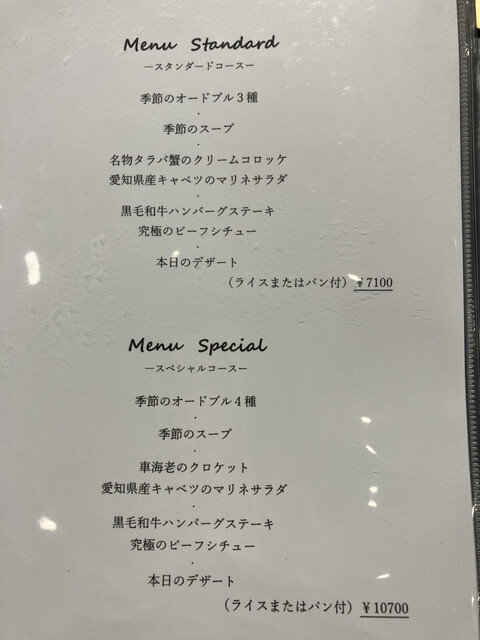 Menu Standard
―スタンダードコース―
季節のオードブル3種
・
季節のスープ
・
名物タラバ蟹のクリームコロッケ
愛知県産キャベツのマリネサラダ
・
黒毛和牛ハンバーグステーキ
究極のビーフシチュー
・
本日のデザート
（ライスまたはパン付）￥7100
Menu Special
―スペシャルコース―
季節のオードブル4種
・
季節のスープ
・
車海老のクロケット
愛知県産キャベツのマリネサラダ
・
黒毛和牛ハンバーグステーキ
究極のビーフシチュー
・
本日のデザート
（ライスまたはパン付）￥10700